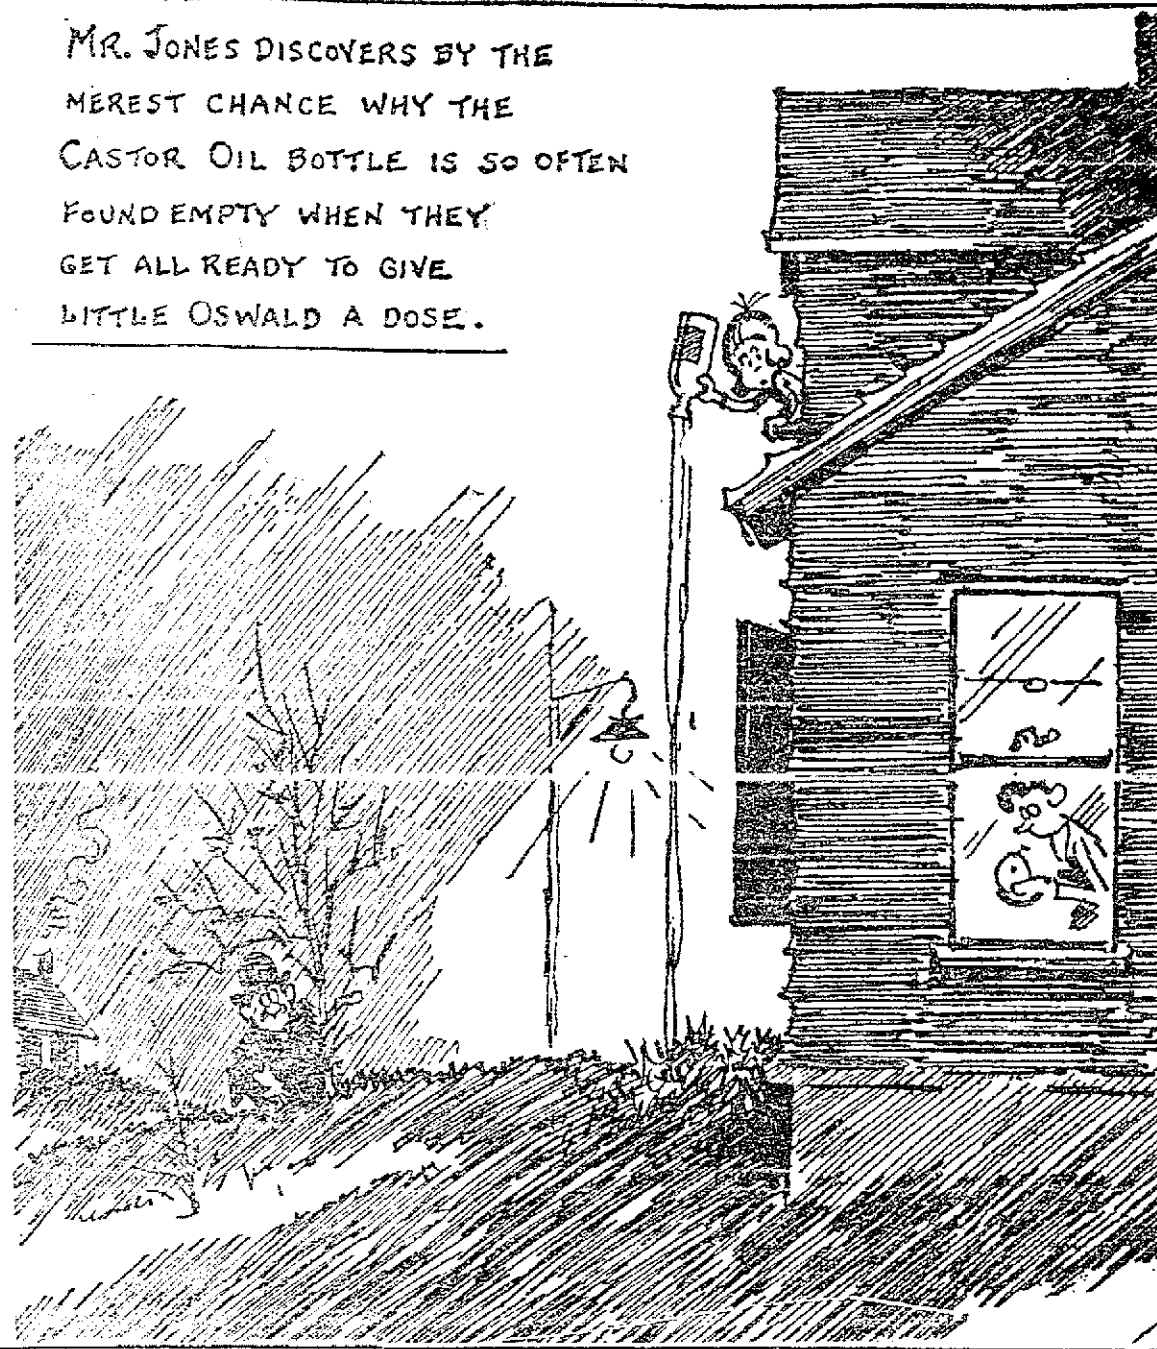 MR. JONES DISCOVERS BY THE
MEREST CHANCE WHY THE
CASTOR OIL BOTTLE IS SO OFTEN
FOUND EMPTY WHEN THEY
GET ALL READY TO GIVE
LITTLE OSWALD A DOSE.